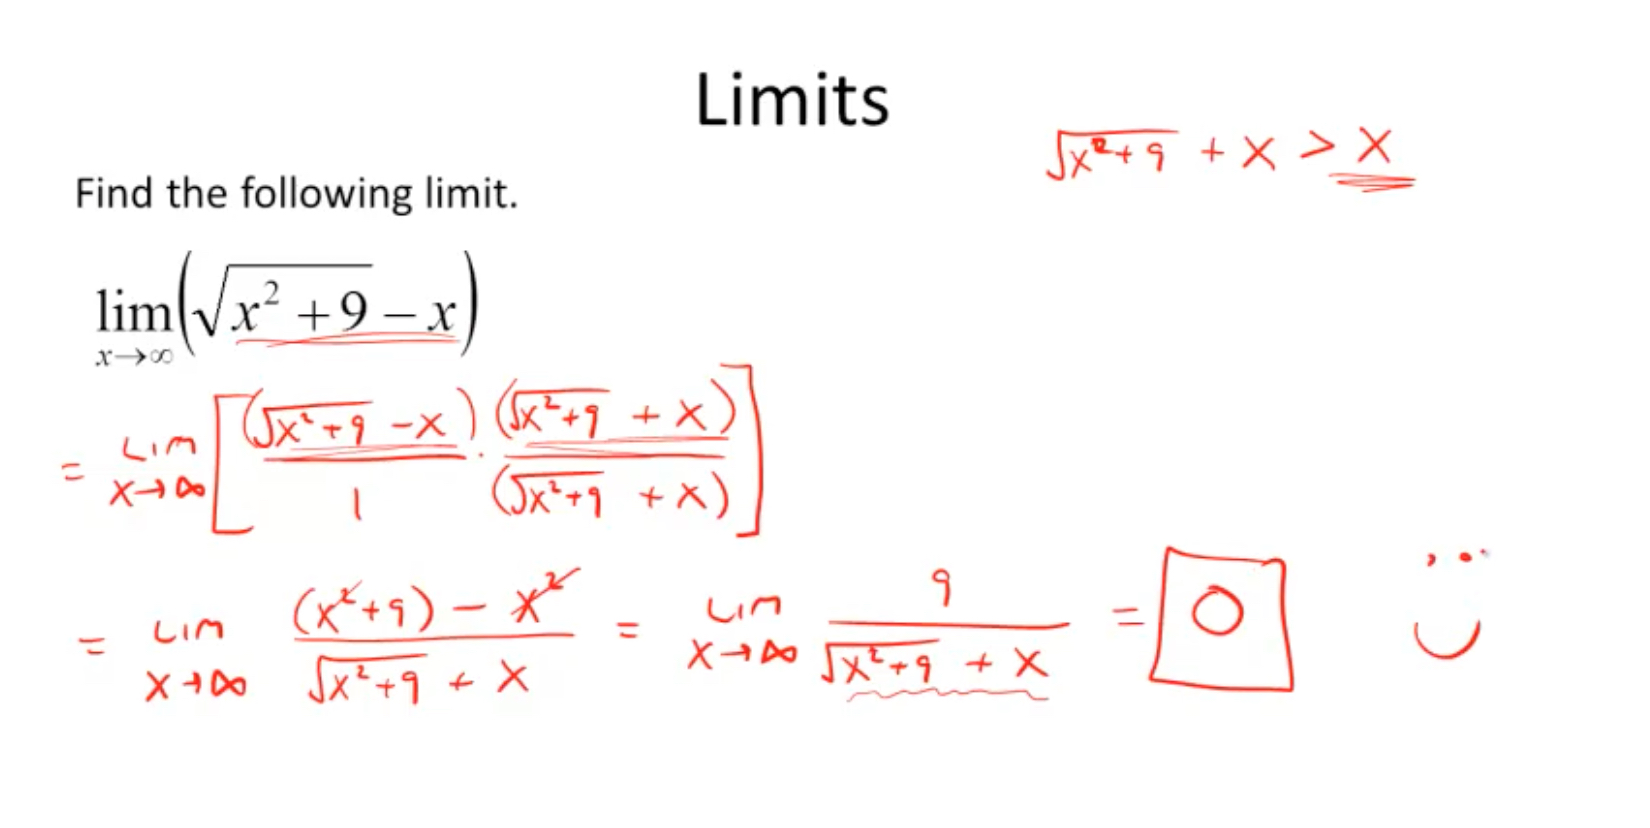 Limits
√(x²+9) + x > x
Find the following limit.
lim x→∞ (√(x² + 9) − x)
= Lim x→∞ [ (√(x²+9) − x)/1 · (√(x²+9) + x)/(√(x²+9) + x) ]
= Lim x→∞ ((x²+9) − x²)/(√(x²+9) + x) = Lim x→∞ 9/(√(x²+9) + x) = 0